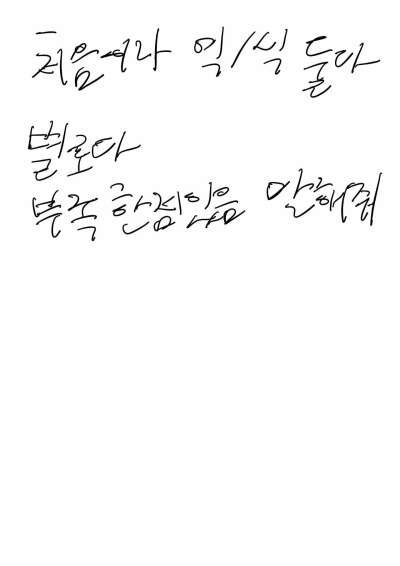 처음이라 익/식 둘다
별로다
부족한점있음 말해줘